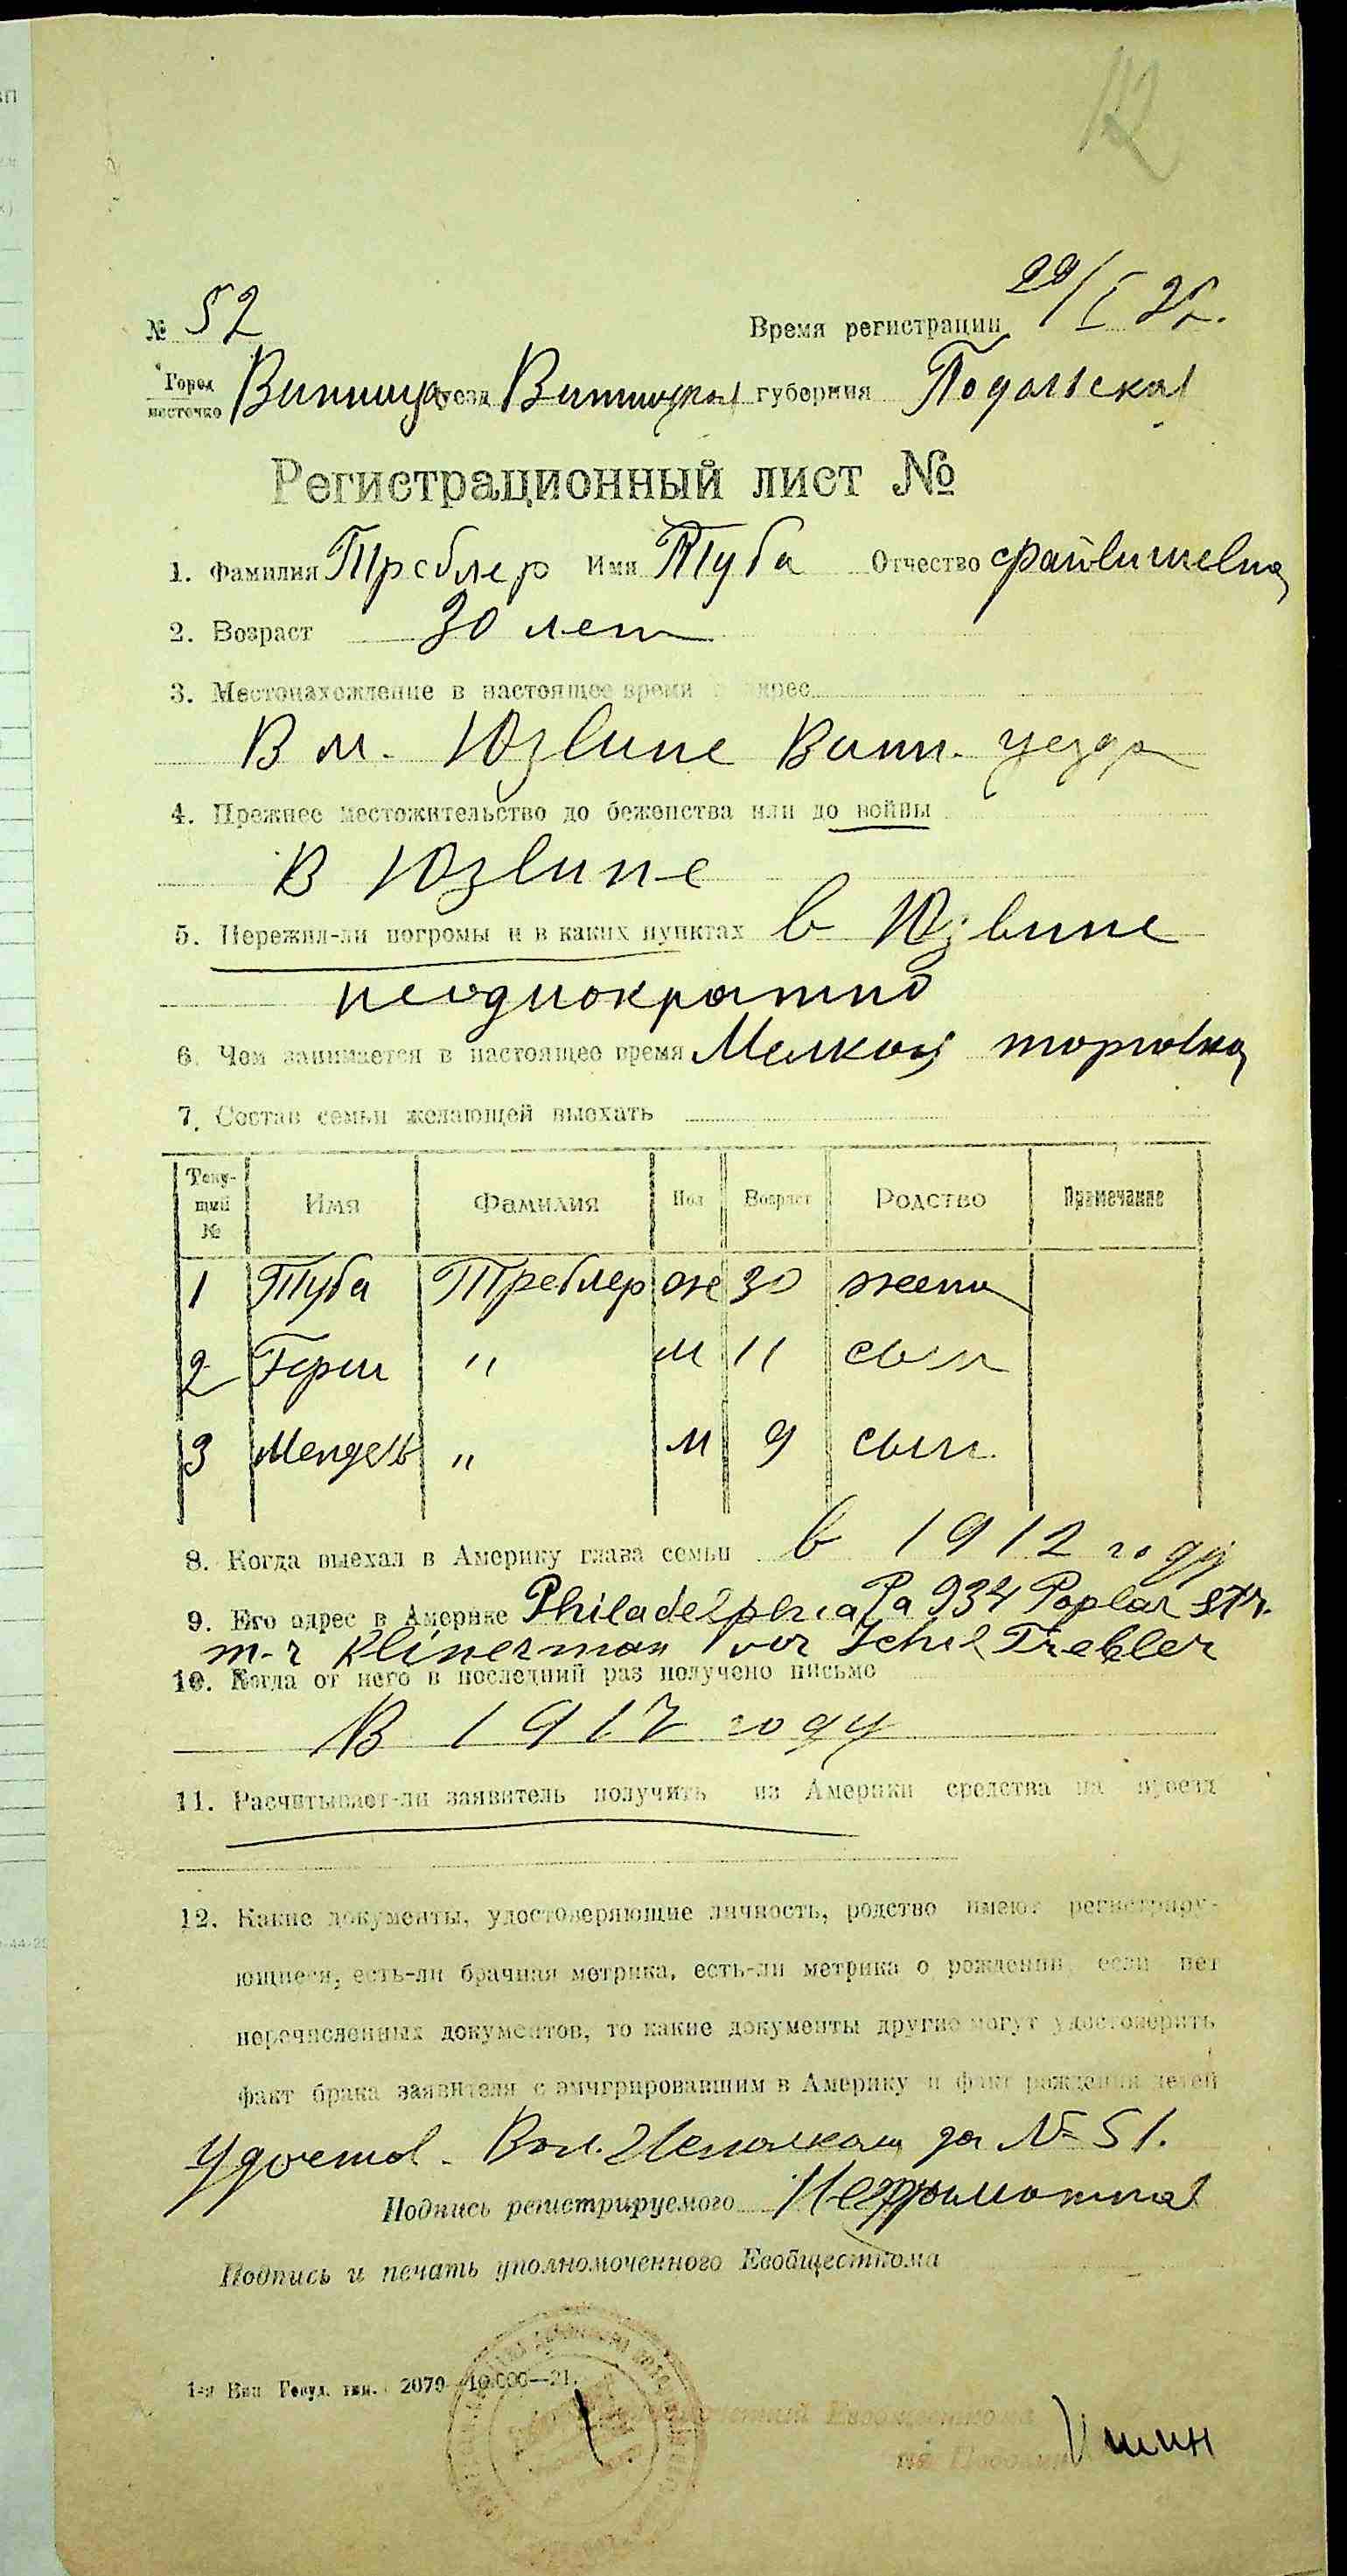 112
№ 52 Время регистрации 29/I 22.
Город местечко Винница уезд Винницкий губерния Подольская
Регистрационный лист №
1. Фамилия Треблер Имя Туба Отчество Файвишевна
2. Возраст 30 лет
3. Местонахождение в настоящее время и адрес
В м. Юзвине Винн. уезда
4. Прежнее местожительство до беженства или до войны
В Юзвине
5. Пережил-ли погромы и в каких пунктах в Юзвине
неоднократно
6. Чем занимается в настоящее время Мелкой торговка
7. Состав семьи желающей выехать
Теку-щий № Имя Фамилия Пол Возраст Родство Примечание
1 Туба Треблер ж 30 жена
2 Герш " м 11 сын
3 Мендель " м 9 сын
8. Когда выехал в Америку глава семьи в 1912 году
9. Его адрес в Америке Philadelphia Pa 934 Poplar str.
m-r Klinerman vor Schil Trebler
10. Когда от него в последний раз получено письмо
В 1917 году
11. Расчитывает-ли заявитель получить из Америки средства на проезд
12. Какие документы, удостоверяющие личность, родство имеют регистриру-
ющиеся, есть-ли брачная метрика, есть-ли метрика о рождении, если нет
перечисленных документов, то какие документы другие могут удостоверить
факт брака заявителя с эмигрировавшим в Америку и факт рождения детей
Удостов. Вол. Исполкома за № 51.
Подпись регистрируемого Неграмотная
Подпись и печать уполномоченного Евобщесткома
1-я Вин Госуд. тип. 2079 10.000—21.
Евобщесткома
на Подолии